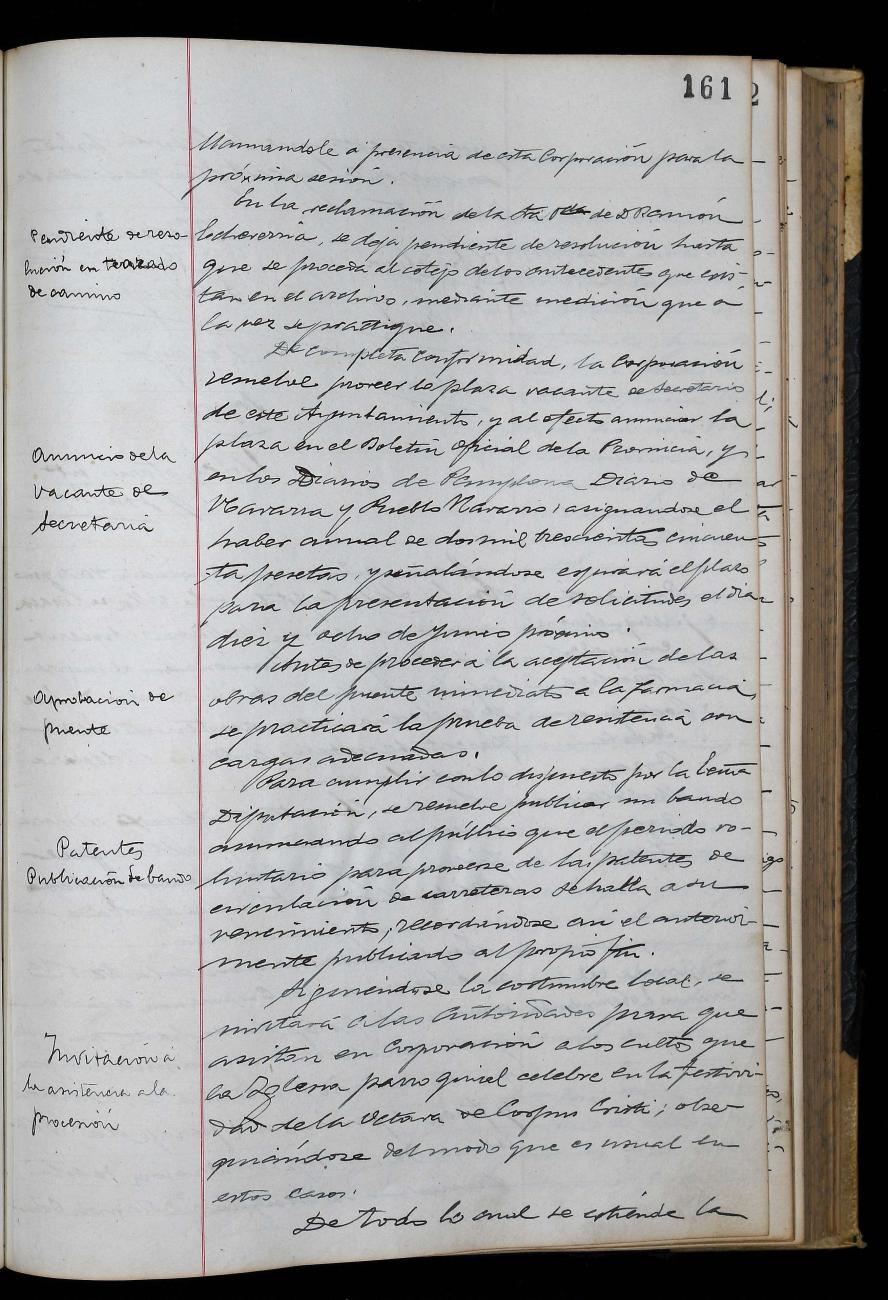 161
llamandole a presencia de esta Corporación para la
próxima sesión.
En la reclamación de la Sra Vda de D Ramón
Echeverria, se deja pendiente de resolución hasta
que se proceda al cotejo de los antecedentes que exis-
tan en el archivo, mediante medición que a
la vez se practique.
Pendiente de reso-
lución en trazado
de camino
De completa conformidad, la Corporación
resuelve proveer la plaza vacante de Secretario
de este Ayuntamiento, y al efecto anunciar la
plaza en el Boletin Oficial de la Provincia, y
en los Diarios de Pamplona Diario de
Navarra y Pueblo Navarro; asignandose el
haber anual de dos mil trescientas cincuen
ta pesetas, y señalándose espirará el plazo
para la presentación de solicitudes el dia
diez y ocho de Junio próximo.
Anuncio de la
vacante de
Secretaria
Antes de proceder a la aceptación de las
obras del puente inmediato a la farmacia,
se practicará la prueba de resistencia con
cargas adecuadas.
Aprobación de
puente
Para cumplir con lo dispuesto por la Excma
Diputación, se resuelve publicar un bando
anunciando al público que el periodo vo-
luntario para proveerse de las patentes de
circulación de carreteras se halla a su
vencimiento, recordándose asi el anterior-
mente publicado al propio fin.
Patentes
Publicación de bando
Siguiendose la costumbre local, se
invitará a las Autoridades para que
asistan en Corporación a los cultos que
la Iglesia parroquial celebre en la festivi-
dad de la Octava de Corpus Cristi; obse-
quiándose del modo que es usual en
estos casos.
Invitación á
la asistencia a la
procesión
De todo lo cual se estiende la